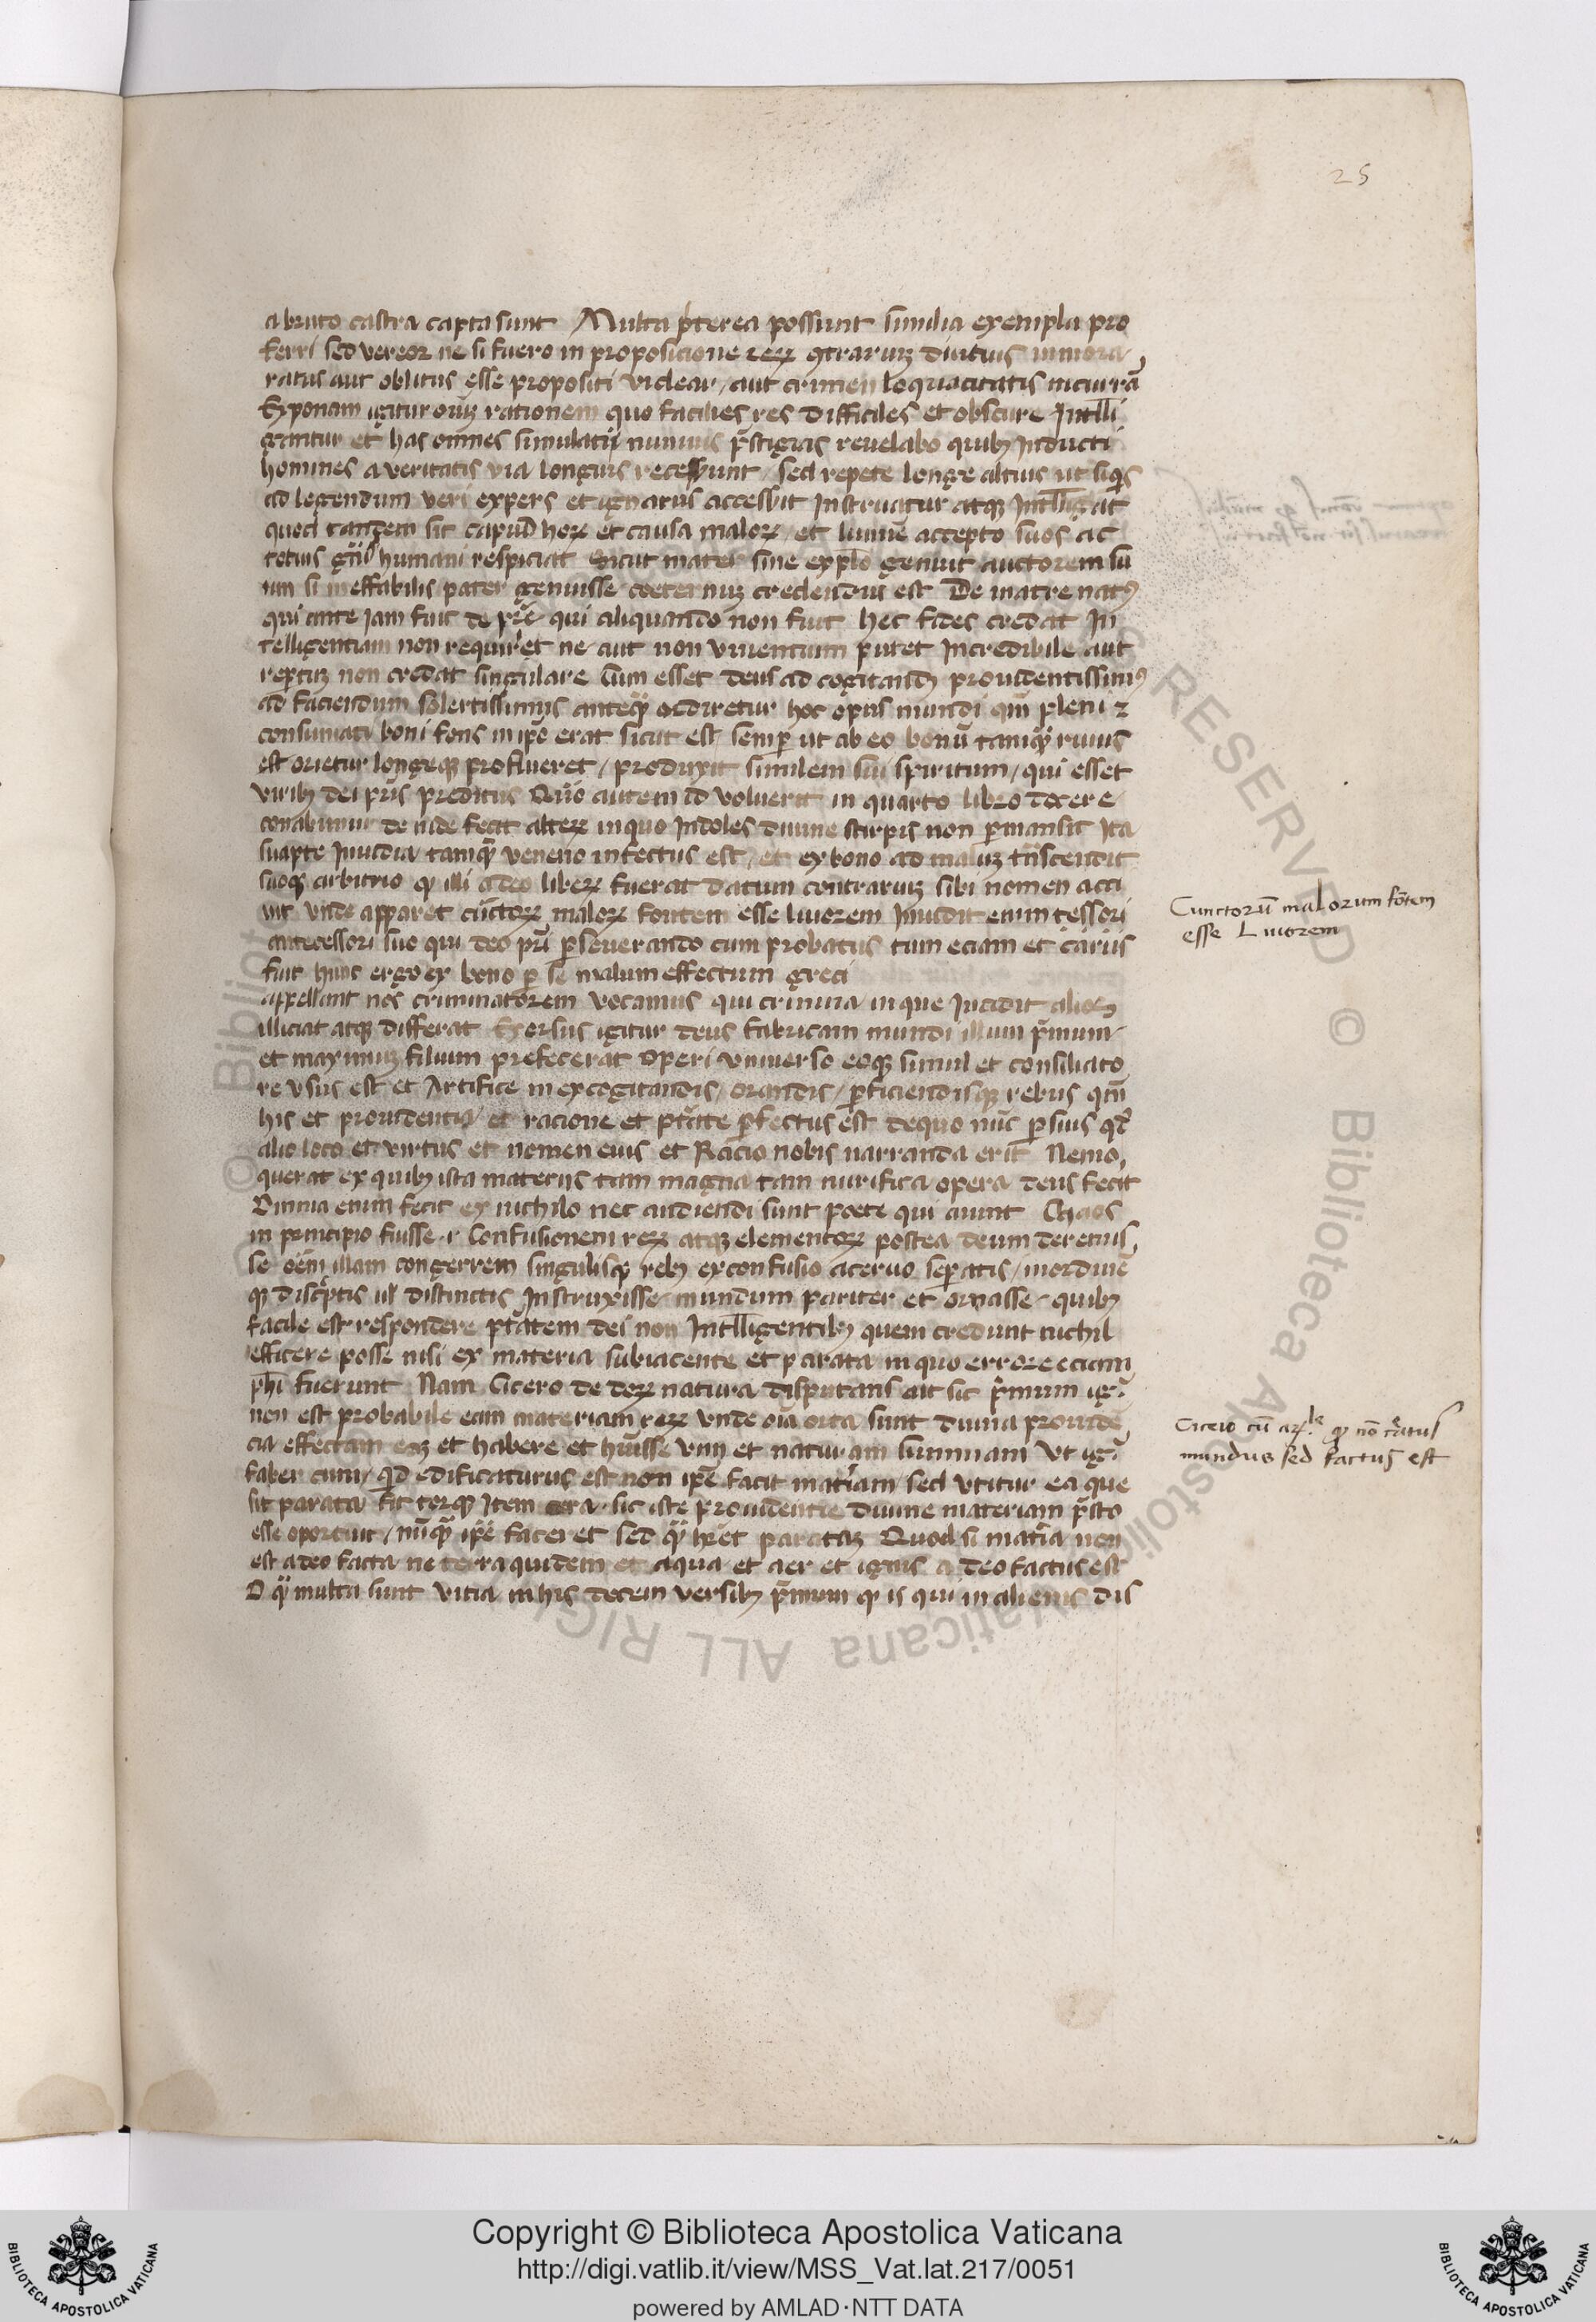 25
a bruto castra capta sunt Multa p̄terea possunt similia exempla pro
ferri sed vereor ne si fuero in proposicione reꝝ ꝯtrariaꝝ diutius inmora
ratus aut oblitus esse propositi videar / aut crimen loquacitatis incurrā
Exponam igitur oīuꝫ rationem quo facilies res difficiles et obscure Intlli
gantur et has omnes simulatiȷ nuninis p̄stigias revelabo quibꝫ inducti
homines a veritatis via longius recesserunt / sed repete longe altius ut siqͥs
ad legendum veri expers et ignarus accesserit Instruatur atqꝫ Intlligat
quod tandem sit caput hoꝝ et causa maloꝝ / et lumīe accepto suos ac
totius gn̄is humani respiciat Sicut mater sine expl̄o genuit auctorem su
um si ineffabilis pater genuisse coeternuꝫ credendus est De matre natꝰ
qui ante iam fuit de pr̄e qui aliquando non fuit hec fides credat In
telligentiam non requirͣet ne aut non inventum putet Incredibile aut
repertuꝫ non credat singulare Cum esset deus ad cogitandū providentissimꝰ
ad faciendum solertissimus anteqͣꝫ ordiretur hoc opus mundi qm̄ pleni ⁊
consumati boni fons in ip̄o erat sicut est semp̄ ut ab eo bonū tamqͣꝫ rivus
est orietur longeqꝫ proflueret / produxit similem sui spiritum / qui esset
viribꝫ dei pr̄is preditus Quō autem id voluerit in quarto libro docere
conabimur deinde fecit alteꝝ in quo Indoles divine stirpis non ꝑmansit Ita
suapte Invidia tamqͣꝫ veneno infectus est / et ex bono ad maluꝫ trāscendit
suoqꝫ arbitrio qꝫ illi a deo libeꝝ fuerat datum contrariuꝫ sibi nomen acci
vit vnde apparet cūctoꝝ maloꝝ fontem esse livorem Invidit enim tessori
antecessori suo qui deo pr̄i ꝑseverando cum probatus tum eciam et carus
fuit hunc ergo ex bono ꝑ se malum effectum greci
appellant nos criminatorem vocamus qui crimina in que Incidit alios
illiciat atqꝫ differat Exorsus igitur deus fabricam mundi illum p̄mum
et maximuꝫ filium prefecerat operi vniverso eoqꝫ simul et consiliato
re vsus est et Artifice in excogitandis / orandis / ꝑficiendisqꝫ rebus qm̄
his et providentia et racione et ptāte ꝑfectus est de quo nūc ꝑ suis qꝛ
alio loco et virtus et nomen eius et Racio nobis narranda erit Nemo
querat ex quibꝫ ista materiis tam magna tam mirifica opera deus fecit
Omnia enim fecit ex nichilo nec audiendi sunt poete qui aiunt Chaos
in principio fuisse .i. Confusionem reꝝ atqꝫ elementoꝝ postea deum deremis
se oēm illam congeriem singulisqꝫ rebꝫ ex confusio acervo seꝑatis / inordinē
qꝫ disc̄ptis ul̄ distinctis Instruxisse mundum pariter et ornasse quibꝫ
facile est respondere ptātem dei non Intlligentibꝫ quem credunt nichil
efficere posse nisi ex materia subiacente et parata in quo errore eciam
ph̄i fuerunt Nam Cicero de deoꝝ natura disputans ait sic p̄mum igͬ
non est probabile eam materiam reꝝ vnde oīa orta sunt divina providē
cia effectam eaꝫ et habere et huisse vim et naturam summam Vt igͬ
faber cum qͥd edificaturus est non ip̄e facit mat̄iam / sed vtitur ea que
sit parata fictorqꝫ Item cera . sic iste providentie divine materiam p̄sto
esse oportuit / nūqͣꝫ ip̄e faceret sed qͣꝫ hr̄et parataꝫ Quod si mat̄ia non
est a deo facta ne terra quidem et aqua et aer et ignis a deo factus est
O qͣꝫ multa sunt vitia in his decem versibꝫ p̄mum qꝫ is qui in alienis dis
Cunctorū malorum fōtem
esse Livorem
mundus sed factus est
Copyright © Biblioteca Apostolica Vaticana
http://digi.vatlib.it/view/MSS_Vat.lat.217/0051
powered by AMLAD·NTT DATA
BIBLIOTECA APOSTOLICA VATICANA
BIBLIOTECA APOSTOLICA VATICANA